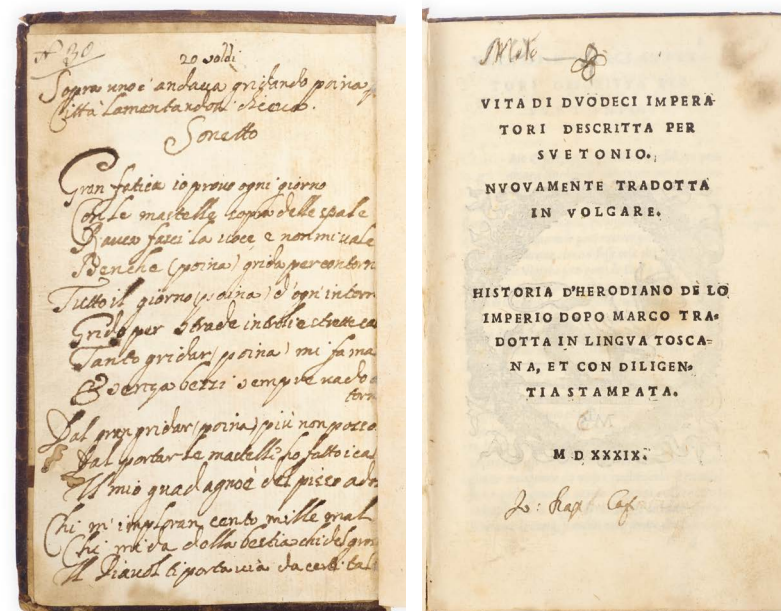 20 soldi
Sopra uno ch' andava gridando poina
Città lamentandosi
Sonetto
Gran fatica io provo ogni giorno
Con le mastelle sopra delle spale
Rauca facci la voce, e non mi vale
Benche (poina) grida per contorn
Tutto il giorno (poina) d'ogn' intorn
Grido per strade
Tanto gridar (poina) mi fa ma
& senza bezzi sempre vado a
torn
Dal gran gridar (poina) più non posso
Dal portar le mastelli ho fatto i ca
Il mio guadagno è del
Chi m' cento mille mal
Chi mi da della bestia chi del
Il Diavol ti porta via
VITA DI DVODECI IMPERA-
TORI DESCRITTA PER
SVETONIO.
NVOVAMENTE TRADOTTA
IN VOLGARE.
HISTORIA D'HERODIANO DE LO
IMPERIO DOPO MARCO TRA-
DOTTA IN LINGVA TOSCA-
NA, ET CON DILIGEN-
TIA STAMPATA.
M D XXXIX.